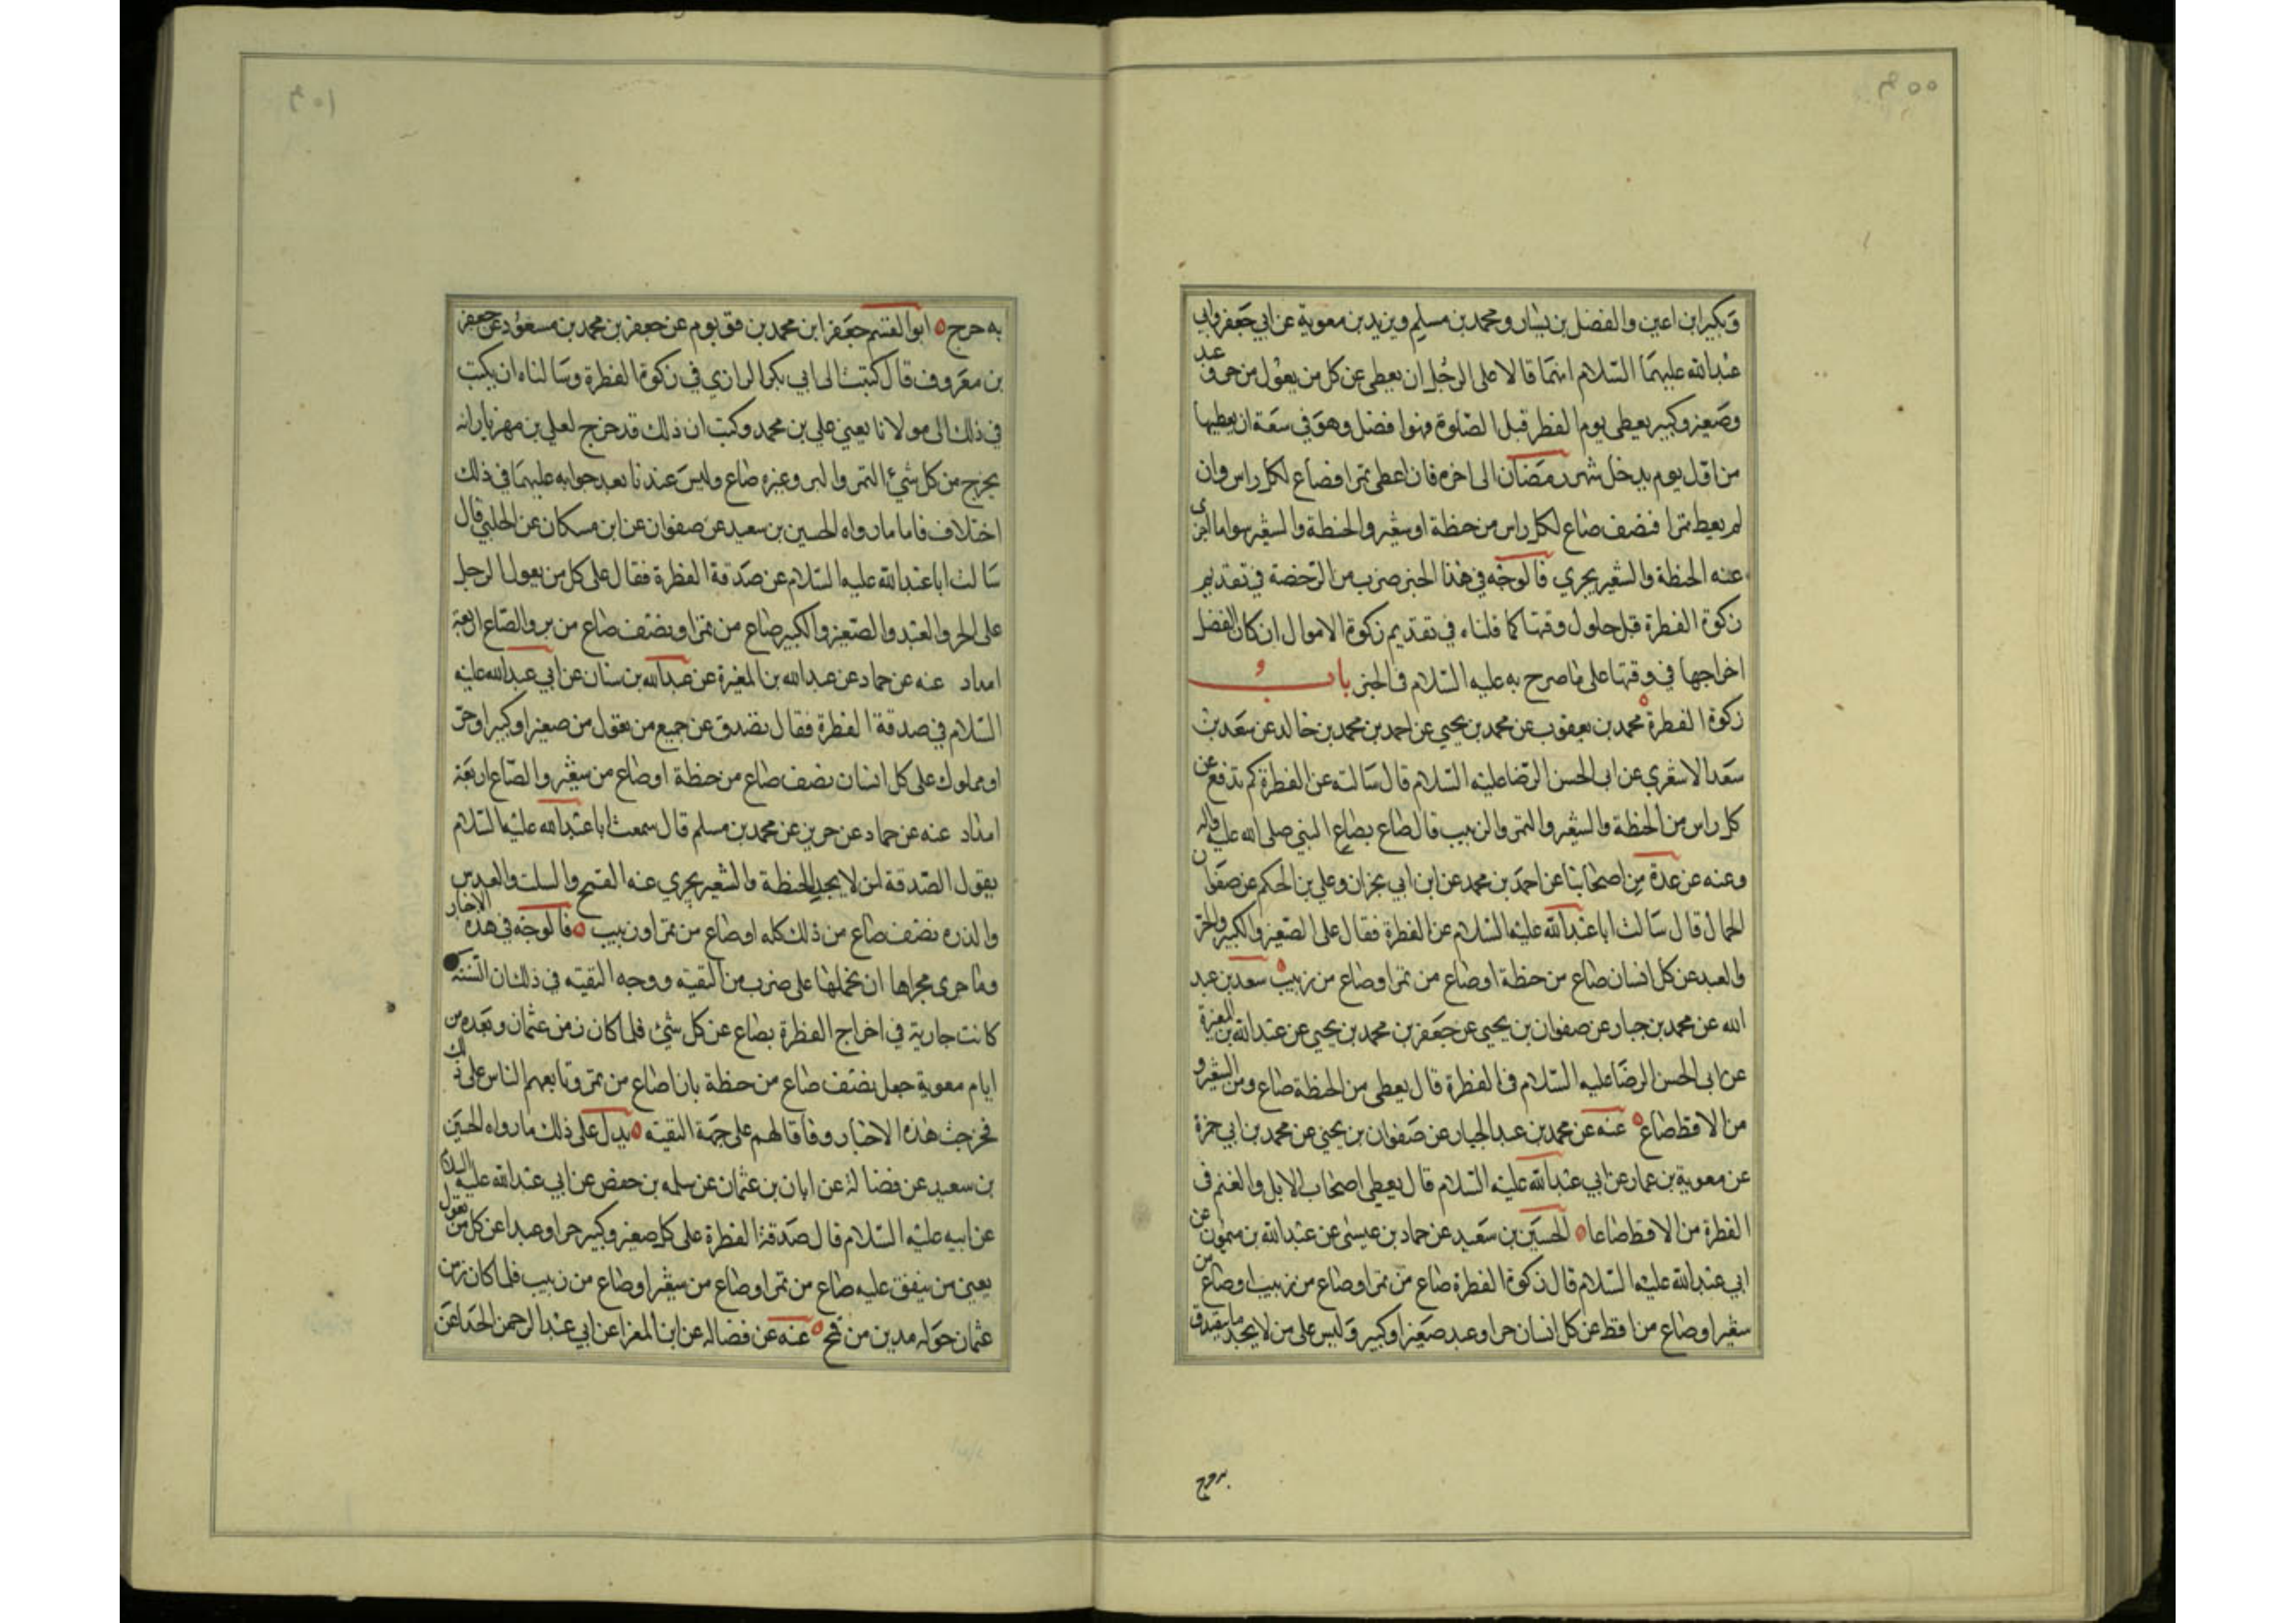 وبكير ابن اعين والفضل بن يسار ومحمد بن مسلم وبريد بن معوية عن ابي جعفر وابي
عبد الله عليهما السلام انهما قالا على الرجل ان يعطى عن كل من يعول من حر وعبد
وصغير وكبير يعطى يوم الفطر قبل الصلوة فهو افضل وهو في سعة ان يعطيها
من اول يوم يدخل شهر رمضان الى اخره فان اعطى تمرا فصاع لكل راس وان
لم يعط تمرا فنصف صاع لكل راس من حنطة او شعير والحنطة والشعير سوا ما اجزى
عنه الحنطة والشعير يجزي فالوجه في هذا الخبر ضرب من الرخصة في تقديم
زكوة الفطرة قبل حلول وقتها كما قلناه في تقديم زكوة الاموال ان كان الفضل
اخراجها في وقتها على ما صرح به عليه السلام في الخبر باب
زكوة الفطرة محمد بن يعقوب عن محمد بن يحيى عن احمد بن محمد بن خالد عن سعد بن
سعد الاشعري عن ابي الحسن الرضا عليه السلام قال سالته عن الفطرة كم تدفع عن
كل راس من الحنطة والشعير والتمر والزبيب قال صاع بصاع النبي صلى الله عليه واله
وعنه عن عدة من اصحابنا عن احمد بن محمد عن ابن ابي نجران وعلي بن الحكم عن صفوان
الجمال قال سالت ابا عبد الله عليه السلام عن الفطرة فقال على الصغير والكبير والحر
والعبد عن كل انسان صاع من حنطة او صاع من تمر او صاع من زبيب سعد بن عبد
الله عن محمد بن جبار عن صفوان بن يحيى عن جعفر بن محمد بن يحيى عن عبد الله بن المغيرة
عن ابي الحسن الرضا عليه السلام في الفطرة قال يعطى من الحنطة صاع ومن الشعير و
من الاقط صاع عنه عن محمد بن عبد الجبار عن صفوان بن يحيى عن محمد بن ابي حمزة
عن معوية بن عمار عن ابي عبد الله عليه السلام قال يعطى اصحاب الابل والغنم في
الفطرة من الاقط صاعا الحسين بن سعيد عن حماد بن عيسى عن عبد الله بن ميمون عن
ابي عبد الله عليه السلام قال زكوة الفطرة صاع من تمر او صاع من زبيب او صاع من
شعير او صاع من اقط عن كل انسان حر او عبد صغير او كبير وليس على من لا يجد ما يتصدق
به حرج ابو القسم جعفر ابن محمد بن قولويه عن جعفر بن محمد بن مسعود عن جعفر
بن معروف قال كتبت الى ابي بكر الرازي في زكوة الفطرة وسالناه ان يكتب
في ذلك الى مولانا يعني علي بن محمد وكتب ان ذلك قد خرج لعلي بن مهزيار انه
يخرج من كل شيء التمر والبر وغيره صاع وليس عندنا بعد جوابه عليهما في ذلك
اختلاف فاما ما رواه الحسين بن سعيد عن صفوان عن ابن مسكان عن الحلبي قال
سالت ابا عبد الله عليه السلام عن صدقة الفطرة فقال على كل من يعول الرجل
على الحر والعبد والصغير والكبير صاع من تمر او نصف صاع من بر والصاع اربعة
امداد عنه عن حماد عن عبد الله بن المغيرة عن عبد الله بن سنان عن ابي عبد الله عليه
السلام في صدقة الفطرة فقال تصدق عن جميع من تعول من صغير او كبير او حر
او مملوك على كل انسان نصف صاع من حنطة او صاع من شعير والصاع اربعة
امداد عنه عن حماد عن حريز عن محمد بن مسلم قال سمعت ابا عبد الله عليه السلام
يقول الصدقة لمن لا يجد الحنطة والشعير يجزي عنه القمح والسلت والعدس
والذره نصف صاع من ذلك كله او صاع من تمر او زبيب فالوجه في هذه الاخبار
وما جرى مجراها ان نحملها على ضرب من التقية ووجه التقية في ذلك ان السنة
كانت جارية في اخراج الفطرة بصاع عن كل شيء فلما كان زمن عثمان وبعده من
ايام معوية جعل نصف صاع من حنطة بازا صاع من تمر وتابعهم الناس على ذلك
فخرجت هذه الاخبار وفاقا لهم على جهة التقية يدل على ذلك ما رواه الحسين
بن سعيد عن فضالة عن ابان بن عثمان عن سلمه بن حفص عن ابي عبد الله عليه السلام
عن ابيه عليه السلام قال صدقة الفطرة على كل صغير وكبير حر او عبد عن كل من يعول
يعني من ينفق عليه صاع من تمر او صاع من شعير او صاع من زبيب فلما كان زمن
عثمان حوله مدين من قمح عنه عن فضاله عن ابن المغرا عن ابي عبد الرحمن الحذا عن